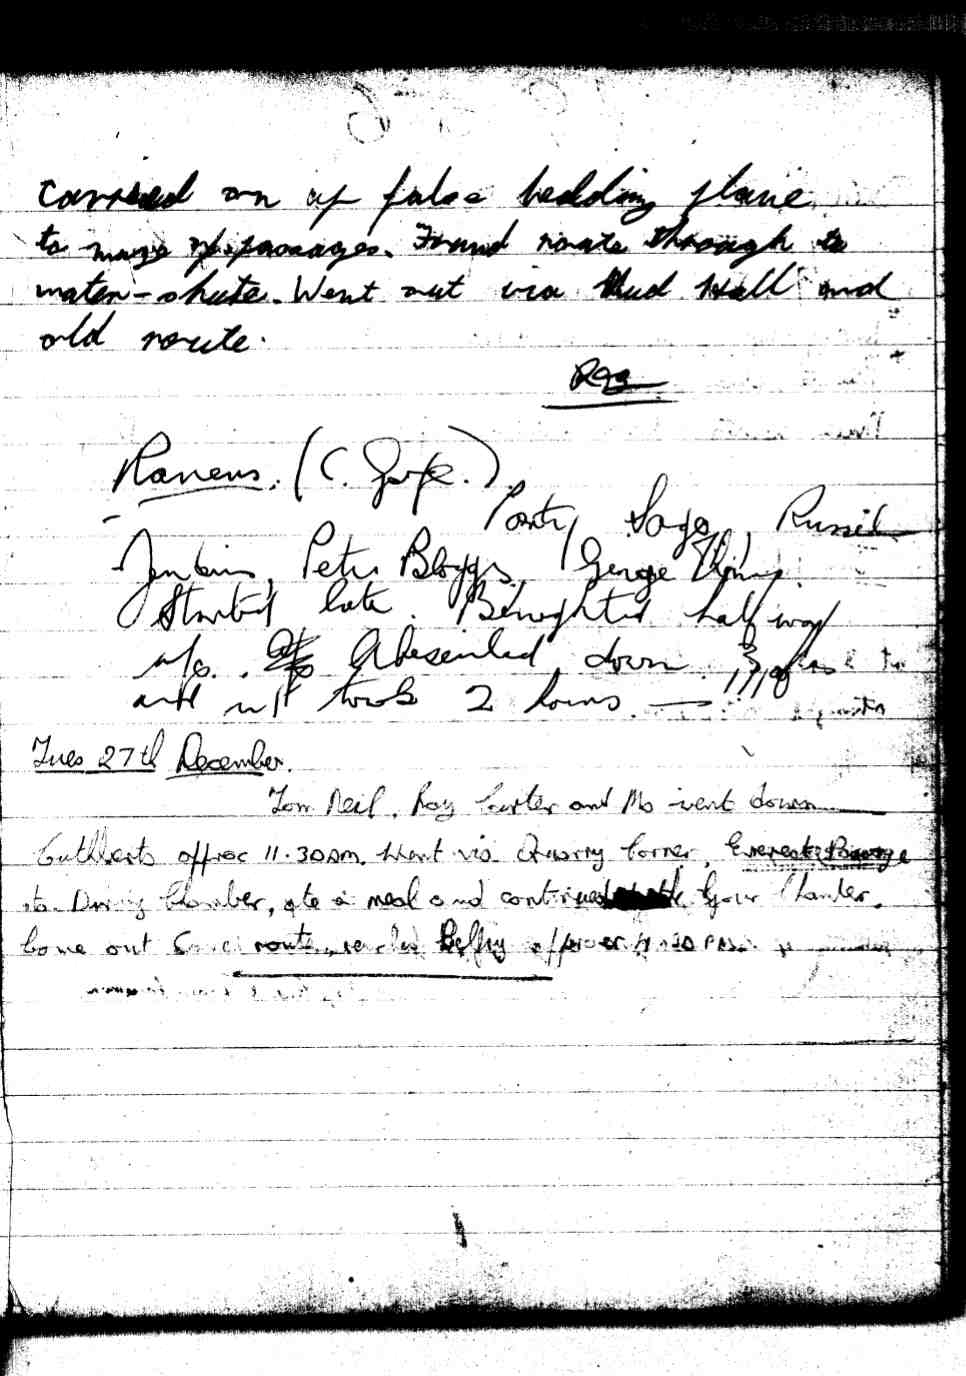 carried on up false bedding plane
to maze of passages. Found route through to
water-shute. Went out via Mud Hall and
old route.
Ravens. (C. Gorge.)
Ponty, Sago, Russell
Jenkins, Peter Bloggs, George
Started late. Benighted half way
up. Abseiled down
and it took 2 hours
Tues 27th December.
Tom Neil, Roy Carter and Mo went down
Cuthberts approx 11.30am. Went via Quarry Corner, Everest Passage
to Dining Chamber, ate a meal and continued to Gour Chamber.
Came out same route, reached Belfry approx 4.30 P.M.